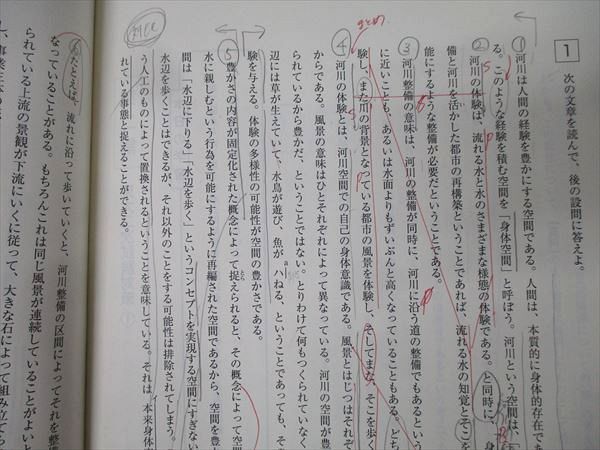 1
次の文章を読んで、後の設問に答えよ。
① 河川は人間の経験を豊かにする空間である。人間は、本質的に身体的存在であ
る。このような経験を積む空間を「身体空間」と呼ぼう。河川という空間は、
② 河川の体験は、流れる水と水のさまざまな様態の体験である。と同時に、身
備と河川を活かした都市の再構築ということであれば、流れる水の知覚とそこを
能にするような整備が必要だということである。
③ 河川整備の意味は、河川の整備が同時に、河川に沿う道の整備でもあるという
に近いことも、あるいは水面よりもずいぶんと高くなっていることもある。どち
験し、また川の背景となっている都市の風景を体験し、そしてまた、そこを歩く
④ 河川の体験とは、河川空間での自己の身体意識である。風景とはじつはそれぞ
からである。風景の意味はひとそれぞれによって異なっている。河川の空間が豊
られているから豊かだ、ということではない。とりわけて何もつくられていなく
辺には草が生えていて、水鳥が遊び、魚がaハねる、ということであっても、そ
験を与える。体験の多様性の可能性が空間の豊かさである。
⑤ 豊かさの内容が固定化された概念によって捉えられると、その概念によって空
水に親しむという行為を可能にするように再編された空間であるから、空間を豊
間は「水辺に下りる」「水辺を歩く」というコンセプトを実現する空間にすぎない
水辺を歩くことはできるが、それ以外のことをする可能性は排除されてしまう。
う人工のものによって置換されるということを意味している。それは、本来身体
れている事態と捉えることができる。
⑥ たとえば、流れに沿って歩いていくと、河川整備の区間によってそれを整備
なっていることがある。もちろんこれは同じ風景が連続していることがよいと
られている上流の景観が下流にいくに従って、大きな石によって組み立てら